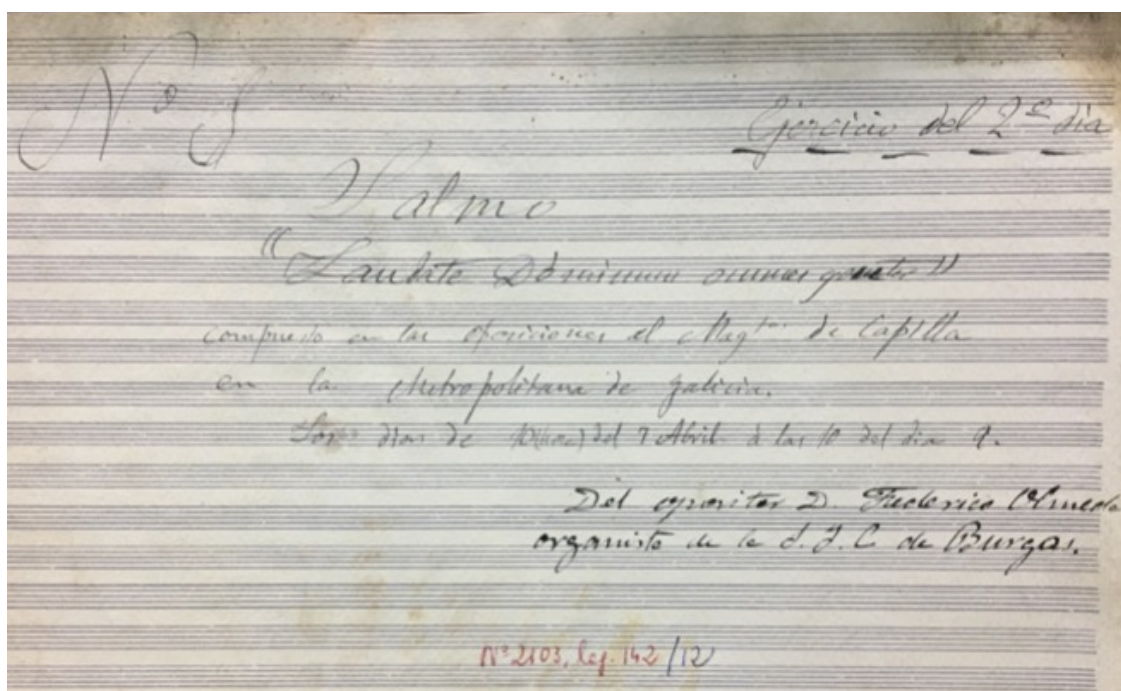 Nº 5
Ejercicio del 2º dia
Salmo
"Laudate Dóminum omnes gentes"
compuesto en las oposiciones al Mag^to de Capilla
en la Metropolitana de Galicia.
dias de del 7 Abril á las 10 del dia 9.
Del opositor D. Federico Olmeda
organista de la S. I. C. de Burgos.
Nº 2103, leg. 142/12